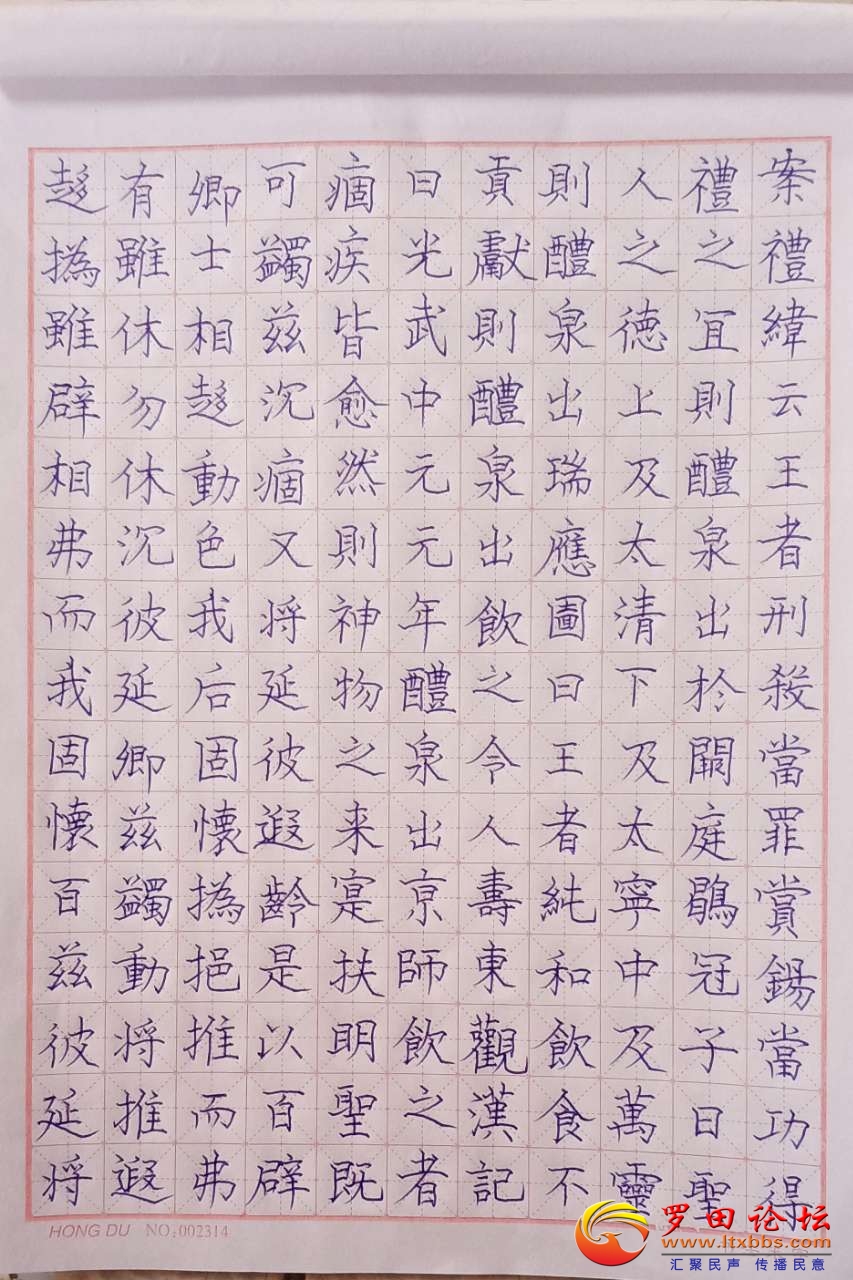 案禮緯云王者刑殺當罪賞錫當功得
禮之宜則醴泉出於闕庭鶡冠子曰聖
人之徳上及太清下及太寧中及萬靈
則醴泉出瑞應圖曰王者純和飲食不
貢獻則醴泉出飲之令人壽東觀漢記
曰光武中元元年醴泉出京師飲之者
痼疾皆愈然則神物之来寔扶明聖既
可蠲兹沉痼又将延彼遐齡是以百辟
卿士相趍動色我后固懷撝挹推而弗
有雖休勿休沉彼延卿兹蠲動将推遐
趍撝雖辟相弗而我固懷百兹彼延将
HONG DU NO:002314
罗田论坛
www.ltxbbs.com
汇聚民声 传播民意